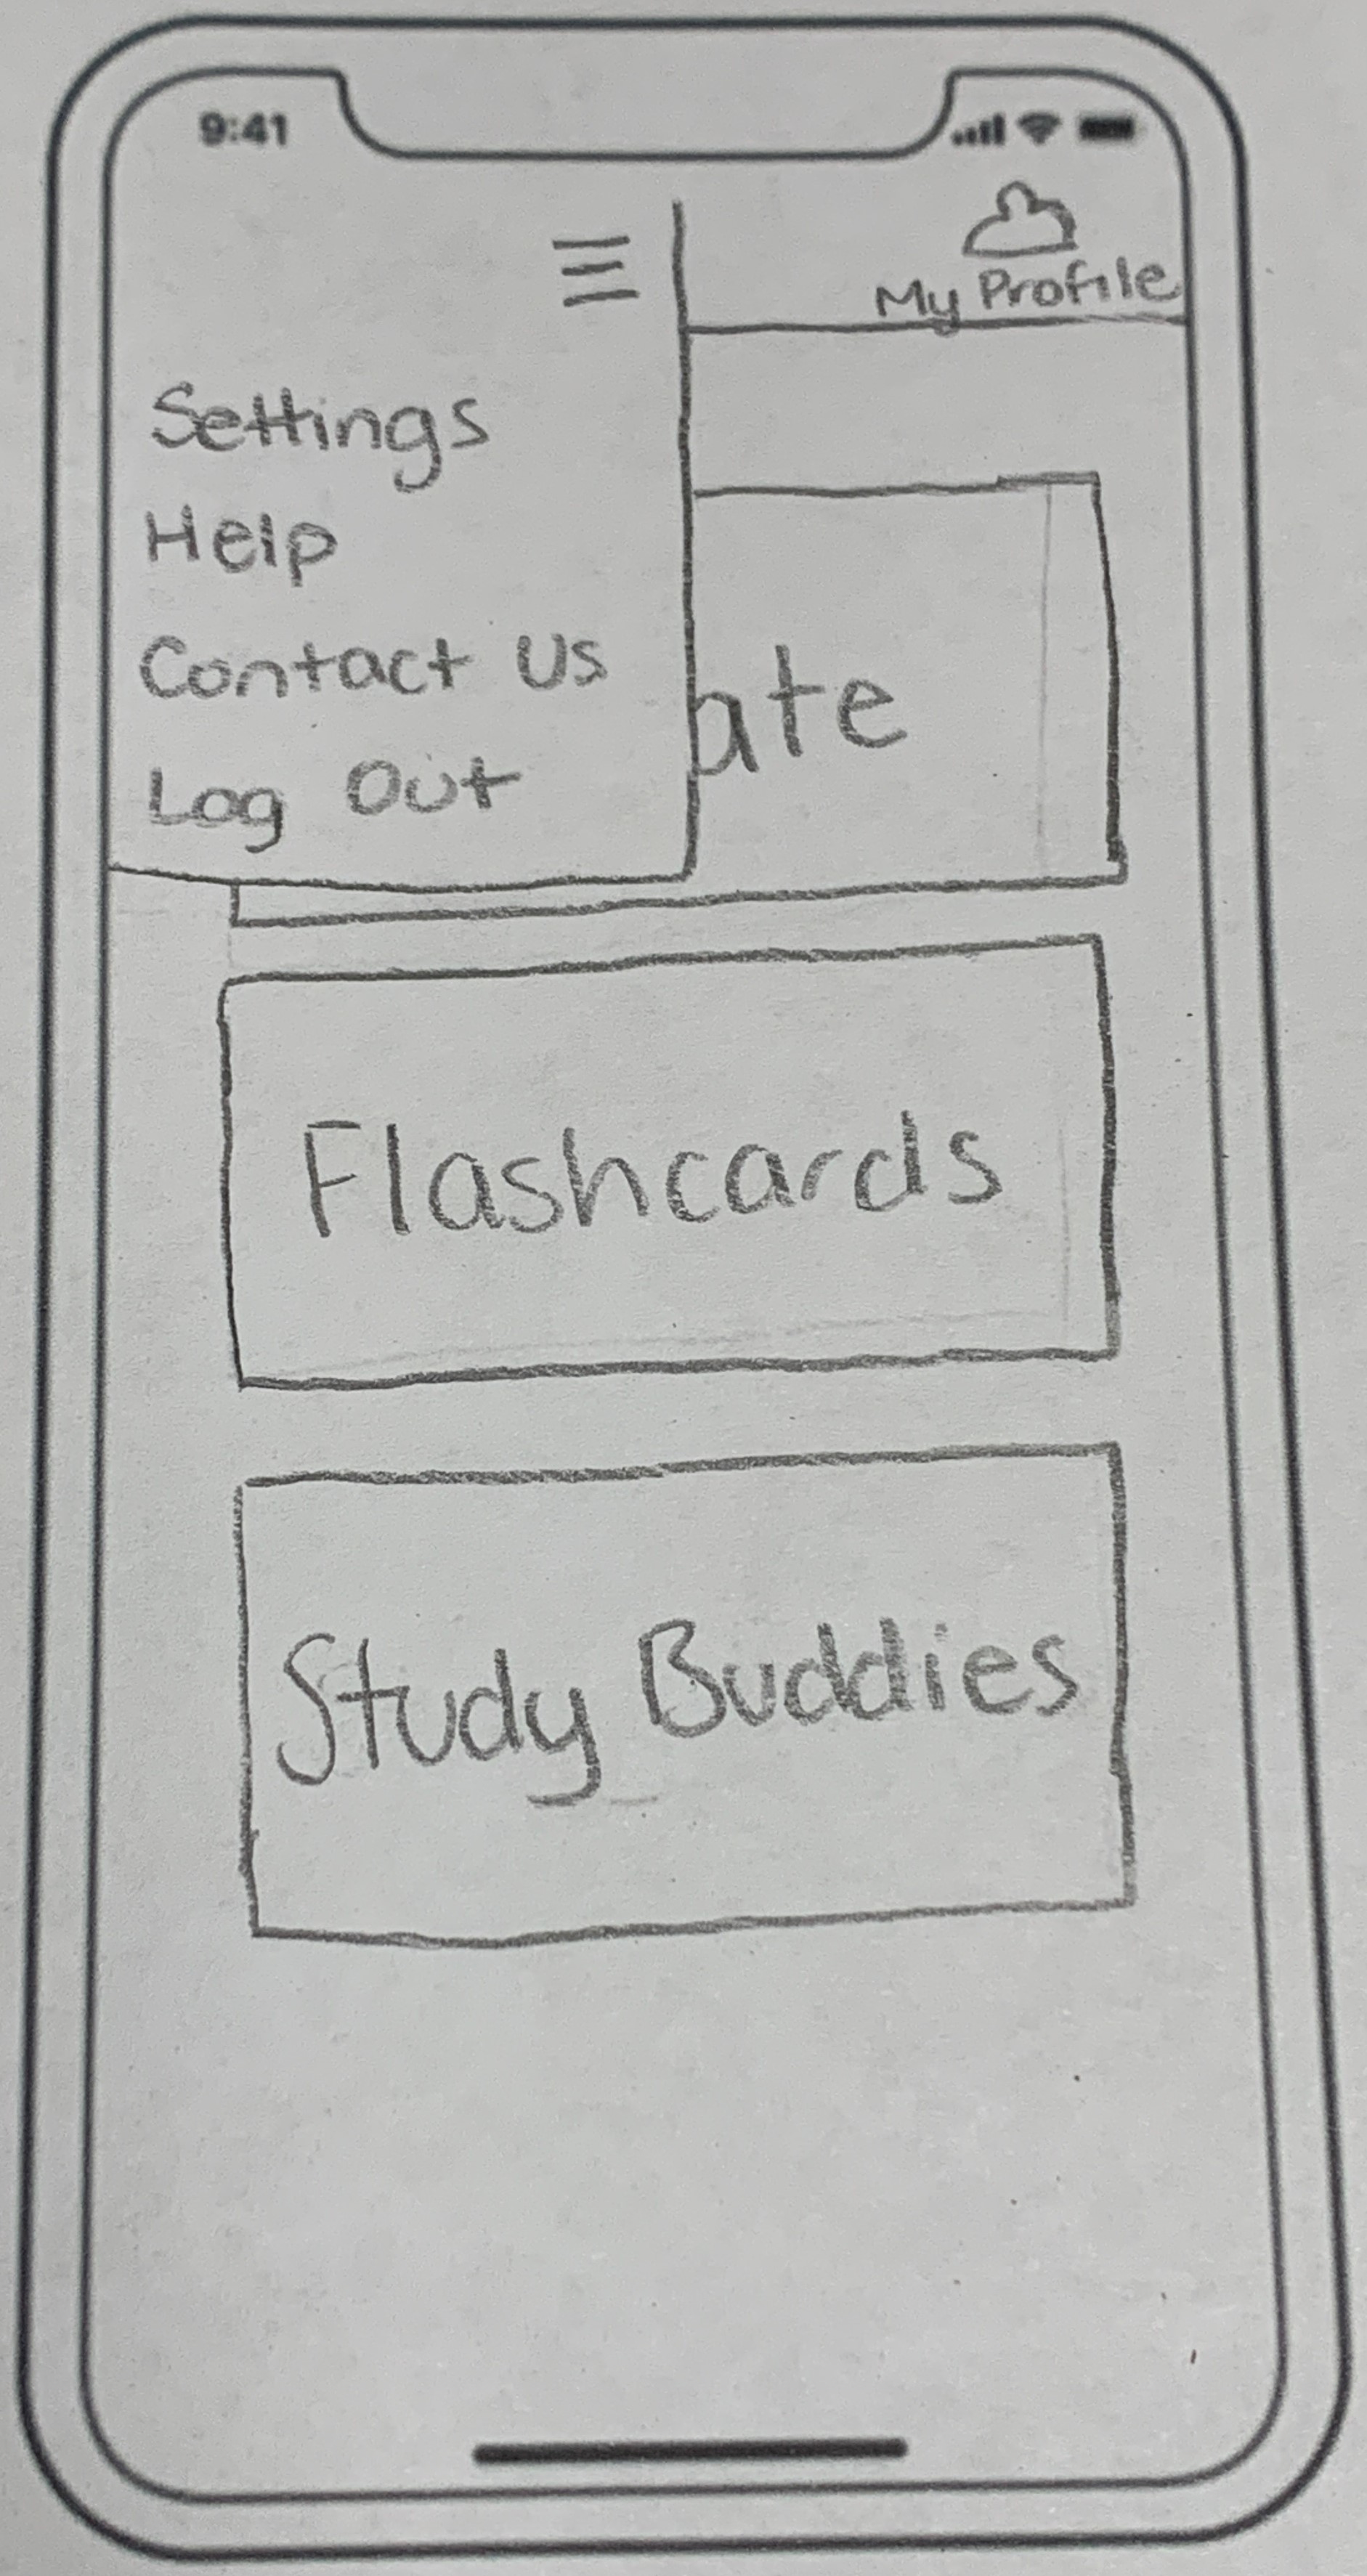 9:41
My Profile
Settings
Help
Contact Us
Log Out
ate
Flashcards
Study Buddies